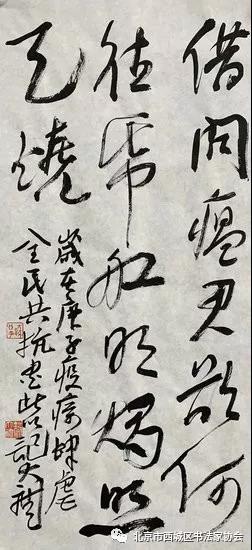 借問瘟君欲何
往帋船明燭照
天燒
歲在庚子疫瘴肆虐
全民共抗書此
北京市西城区书法家协会